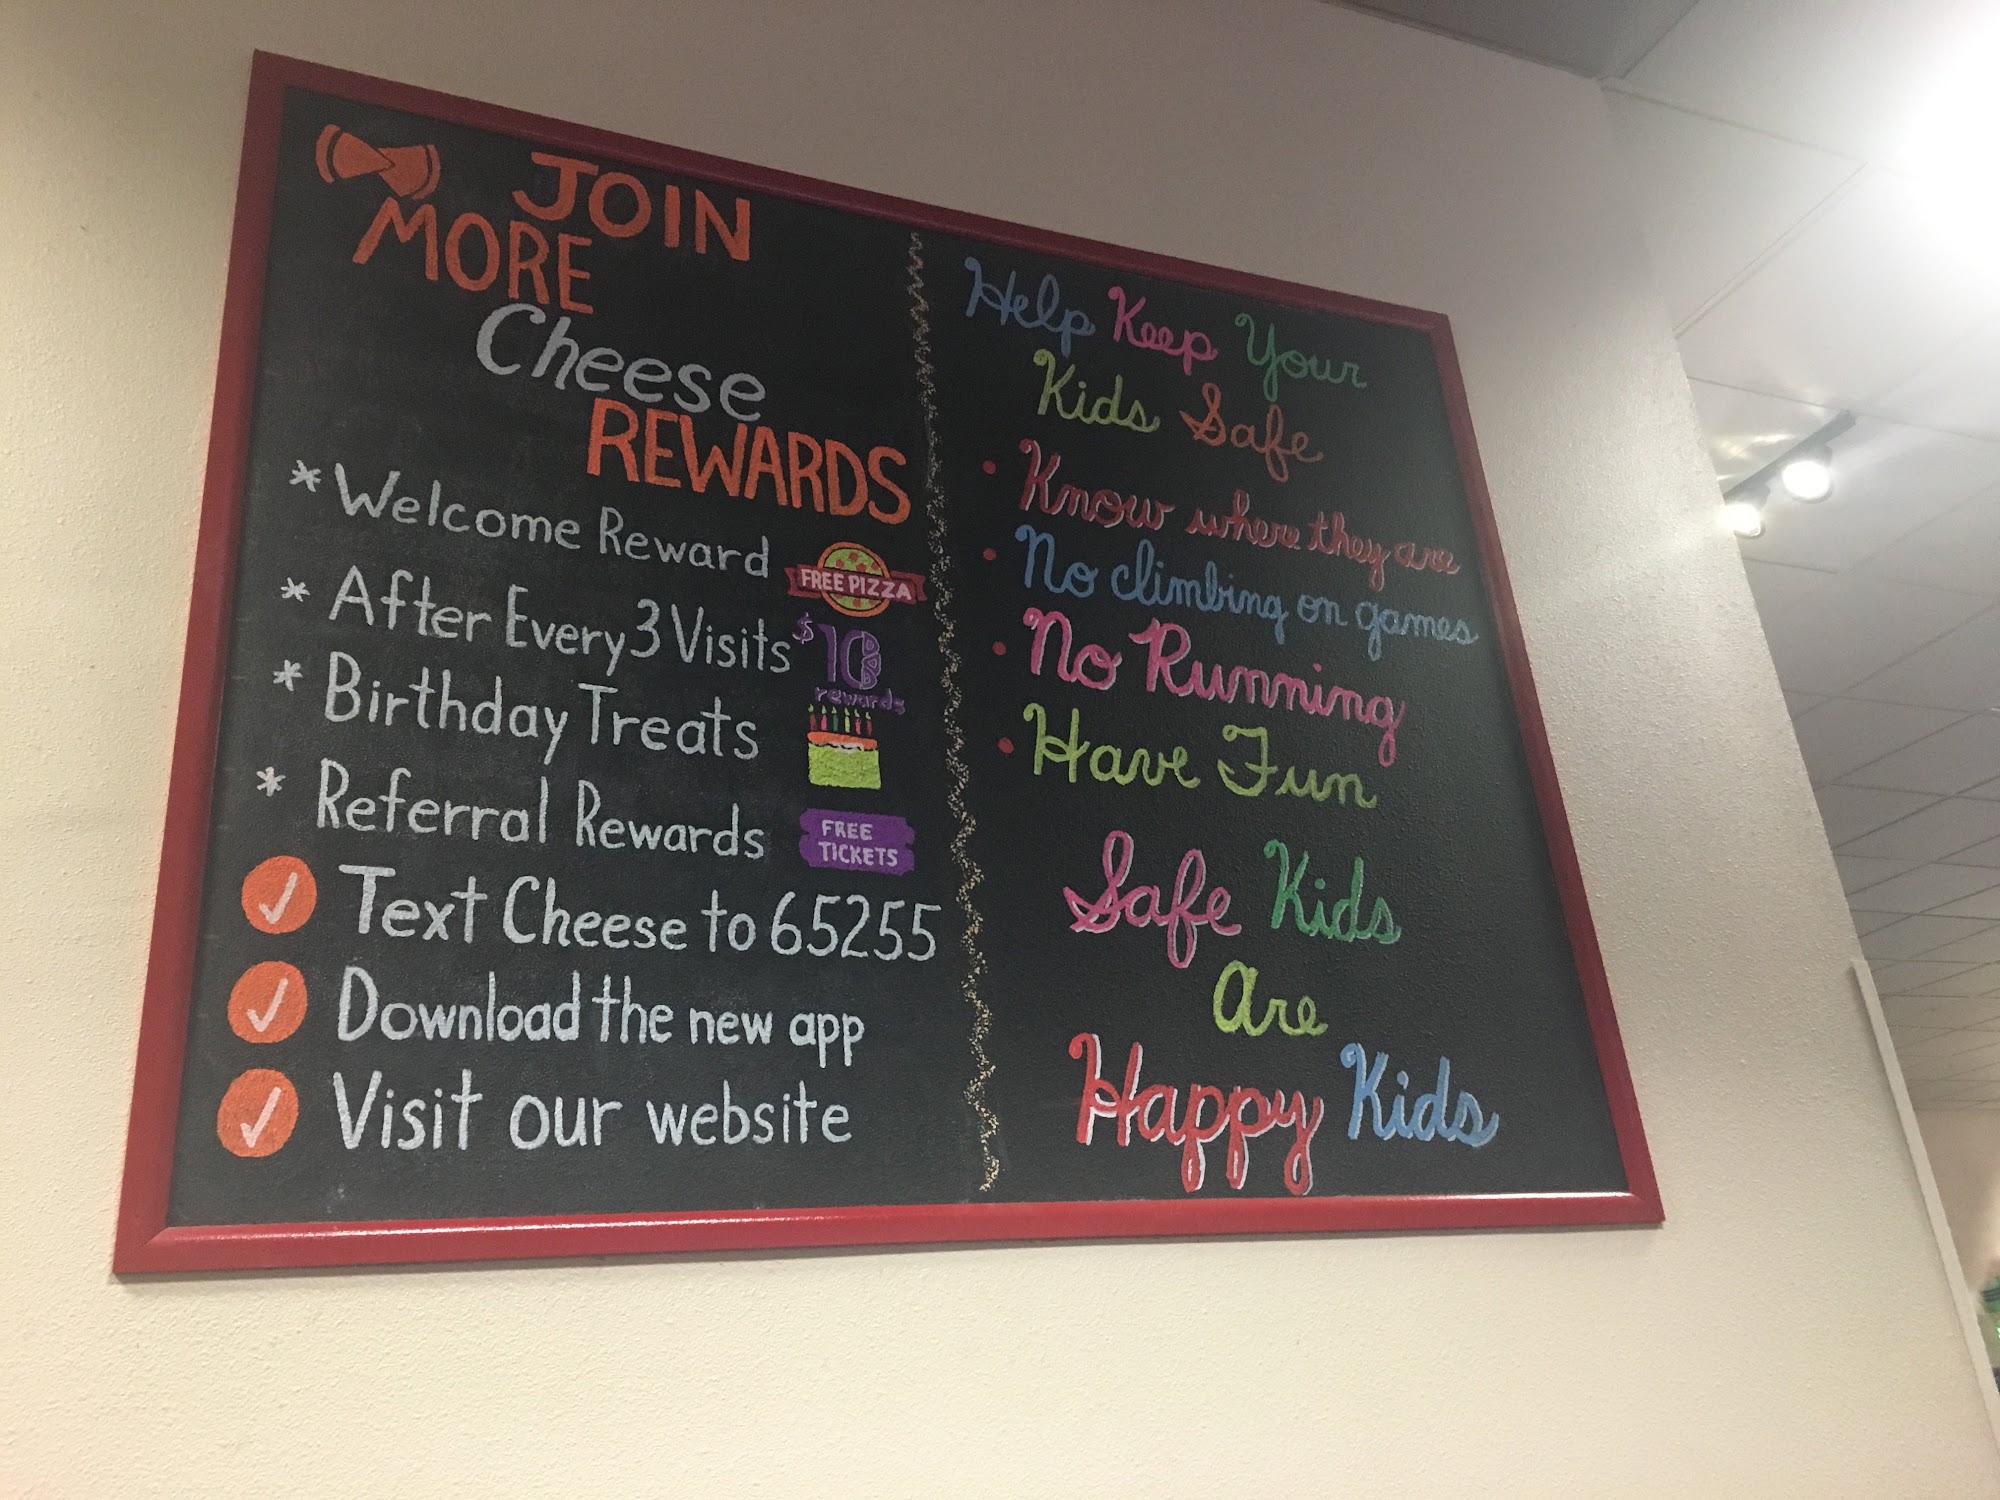 JOIN
MORE
Cheese
REWARDS
* Welcome Reward FREE PIZZA
* After Every 3 Visits $10 rewards
* Birthday Treats
* Referral Rewards FREE TICKETS
✓ Text Cheese to 65255
✓ Download the new app
✓ Visit our website
Help Keep Your
Kids Safe
• Know where they are
• No climbing on games
• No Running
• Have Fun
Safe Kids
Are
Happy Kids